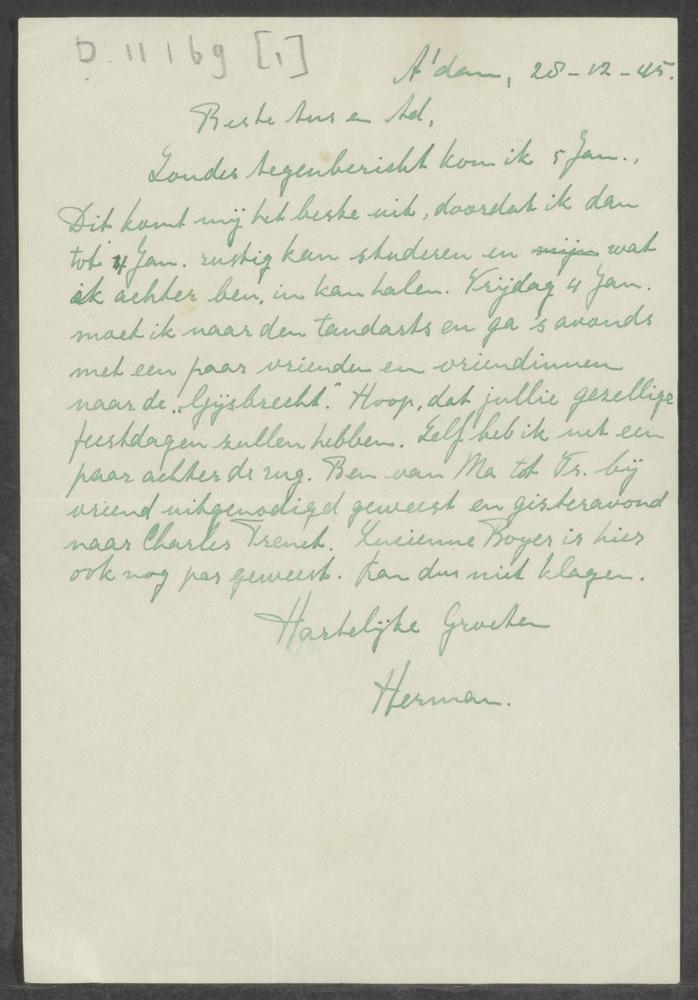 D. 11169 [1]
A'dam, 28-12-45.
Beste Ans en Ad,
Zonder tegenbericht kom ik 5 Jan.,
Dit komt mij het beste uit, doordat ik dan
tot 4 Jan. rustig kan studeren en mijn wat
ik achter ben, in kan halen. Vrijdag 4 Jan.
moet ik naar den tandarts en ga 's avonds
met een paar vrienden en vriendinnen
naar de „Gijsbrecht." Hoop, dat jullie gezellige
feestdagen zullen hebben. Zelf heb ik net een
paar achter de rug. Ben van Ma tot Vr. bij
vriend uitgenodigd geweest en gisteravond
naar Charles Trenet. Lucienne Boyer is hier
ook nog pas geweest. Kan dus niet klagen.
Hartelijke Groeten
Herman.